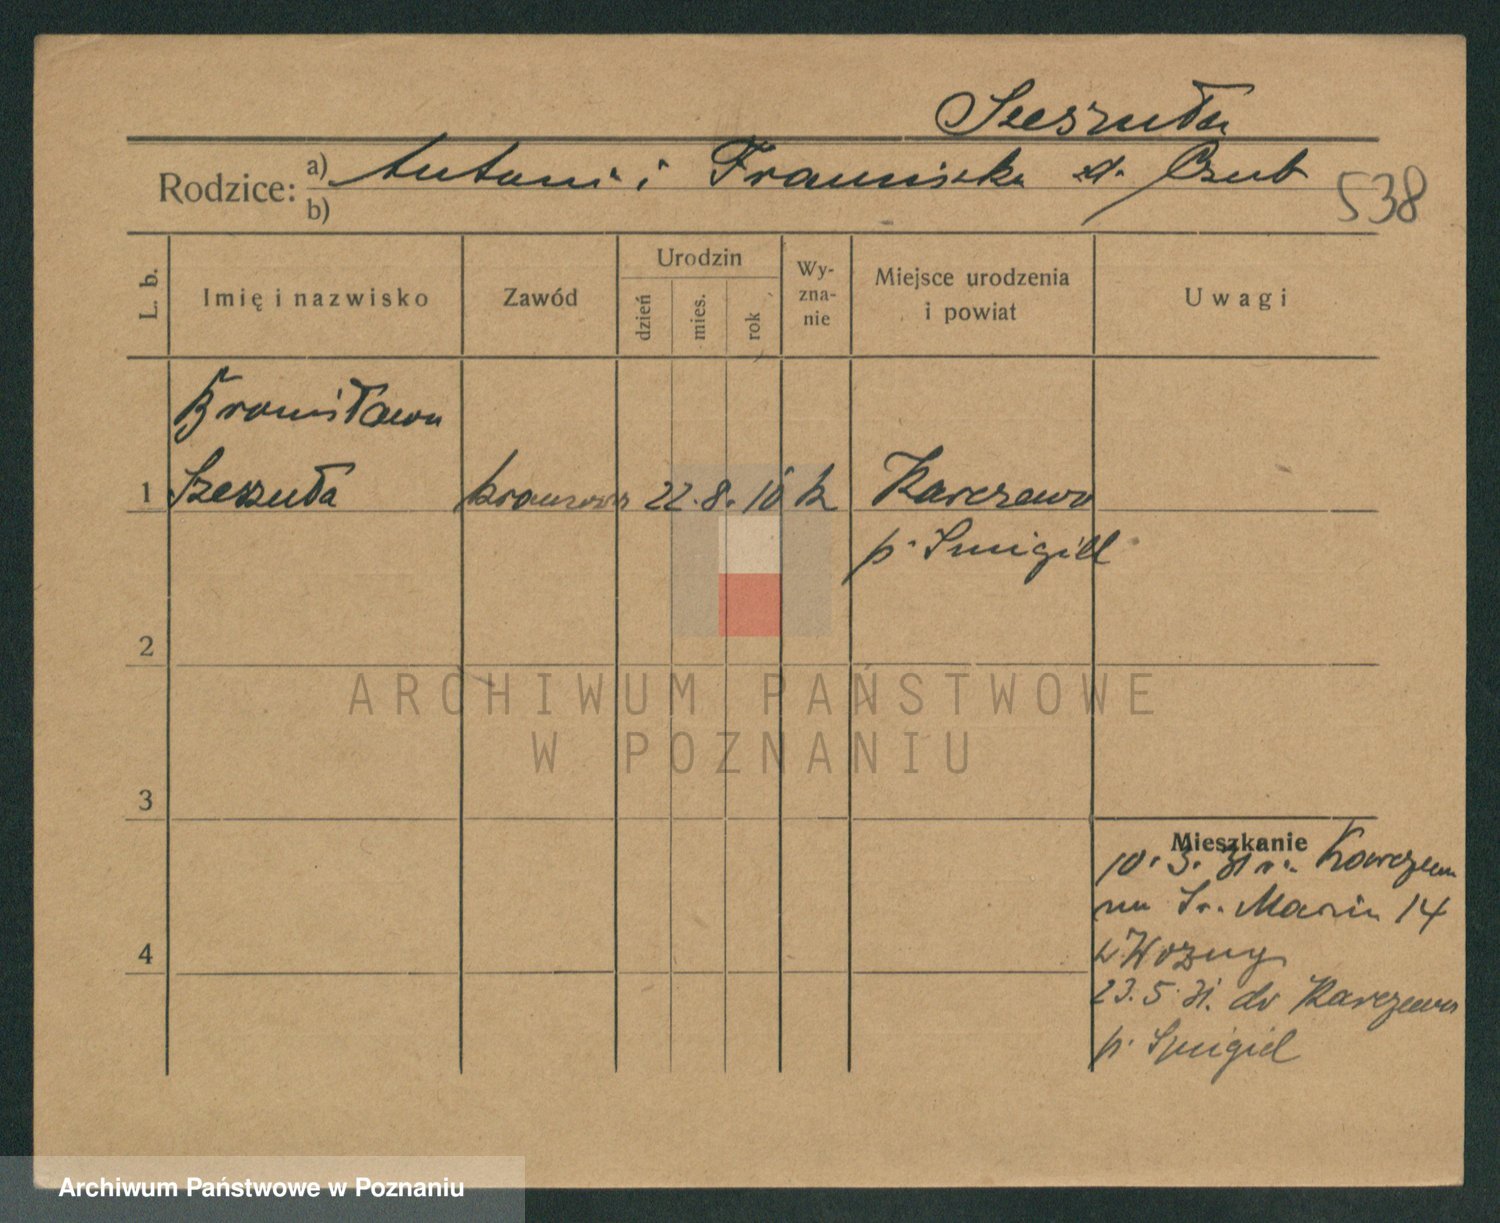 Szeszuła
Rodzice: a) Antoni i Franciszka d. Czub
b)
538
L. b.
Imię i nazwisko
Zawód
Urodzin
dzień
mies.
rok
Wy-
zna-
nie
Miejsce urodzenia
i powiat
Uwagi
Bronisława
1 Szeszuła krawcowa 22. 8. 10 k Karczewo
p. Śmigiel
2
ARCHIWUM PAŃSTWOWE
W POZNANIU
3
Mieszkanie
10. 3. 31 r. Karczewa
na Św. Marcin 14
23. 5. 31. do Karczewa
p. Śmigiel
4
Archiwum Państwowe w Poznaniu